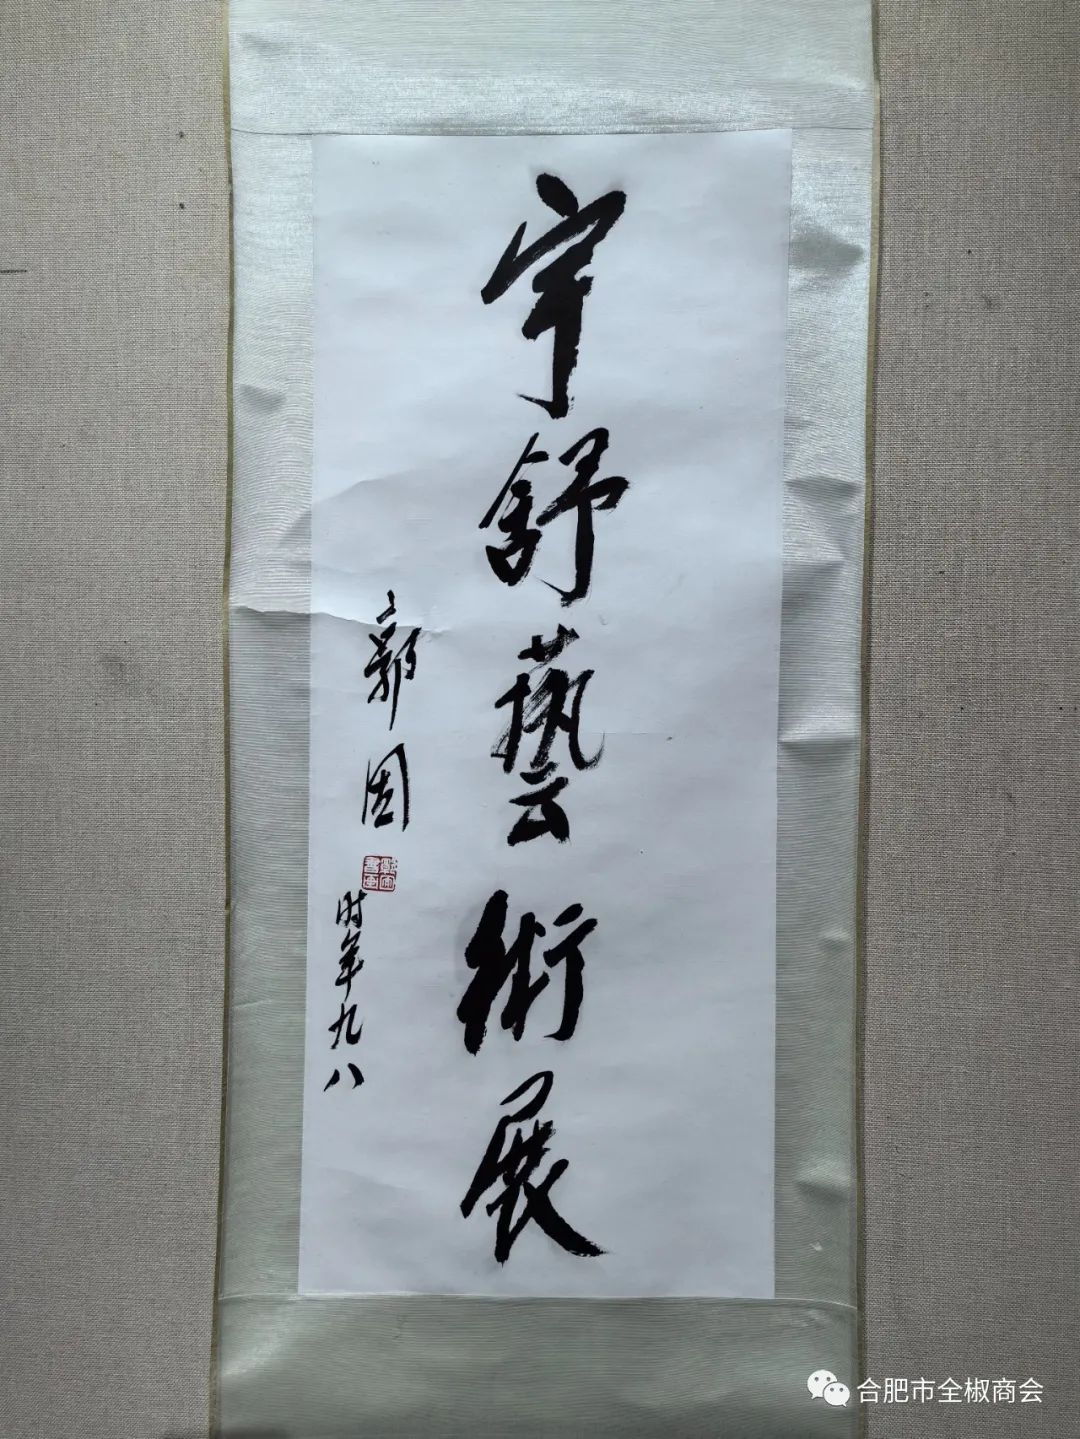 宇舒藝術展
郭因
时年九八
合肥市全椒商会